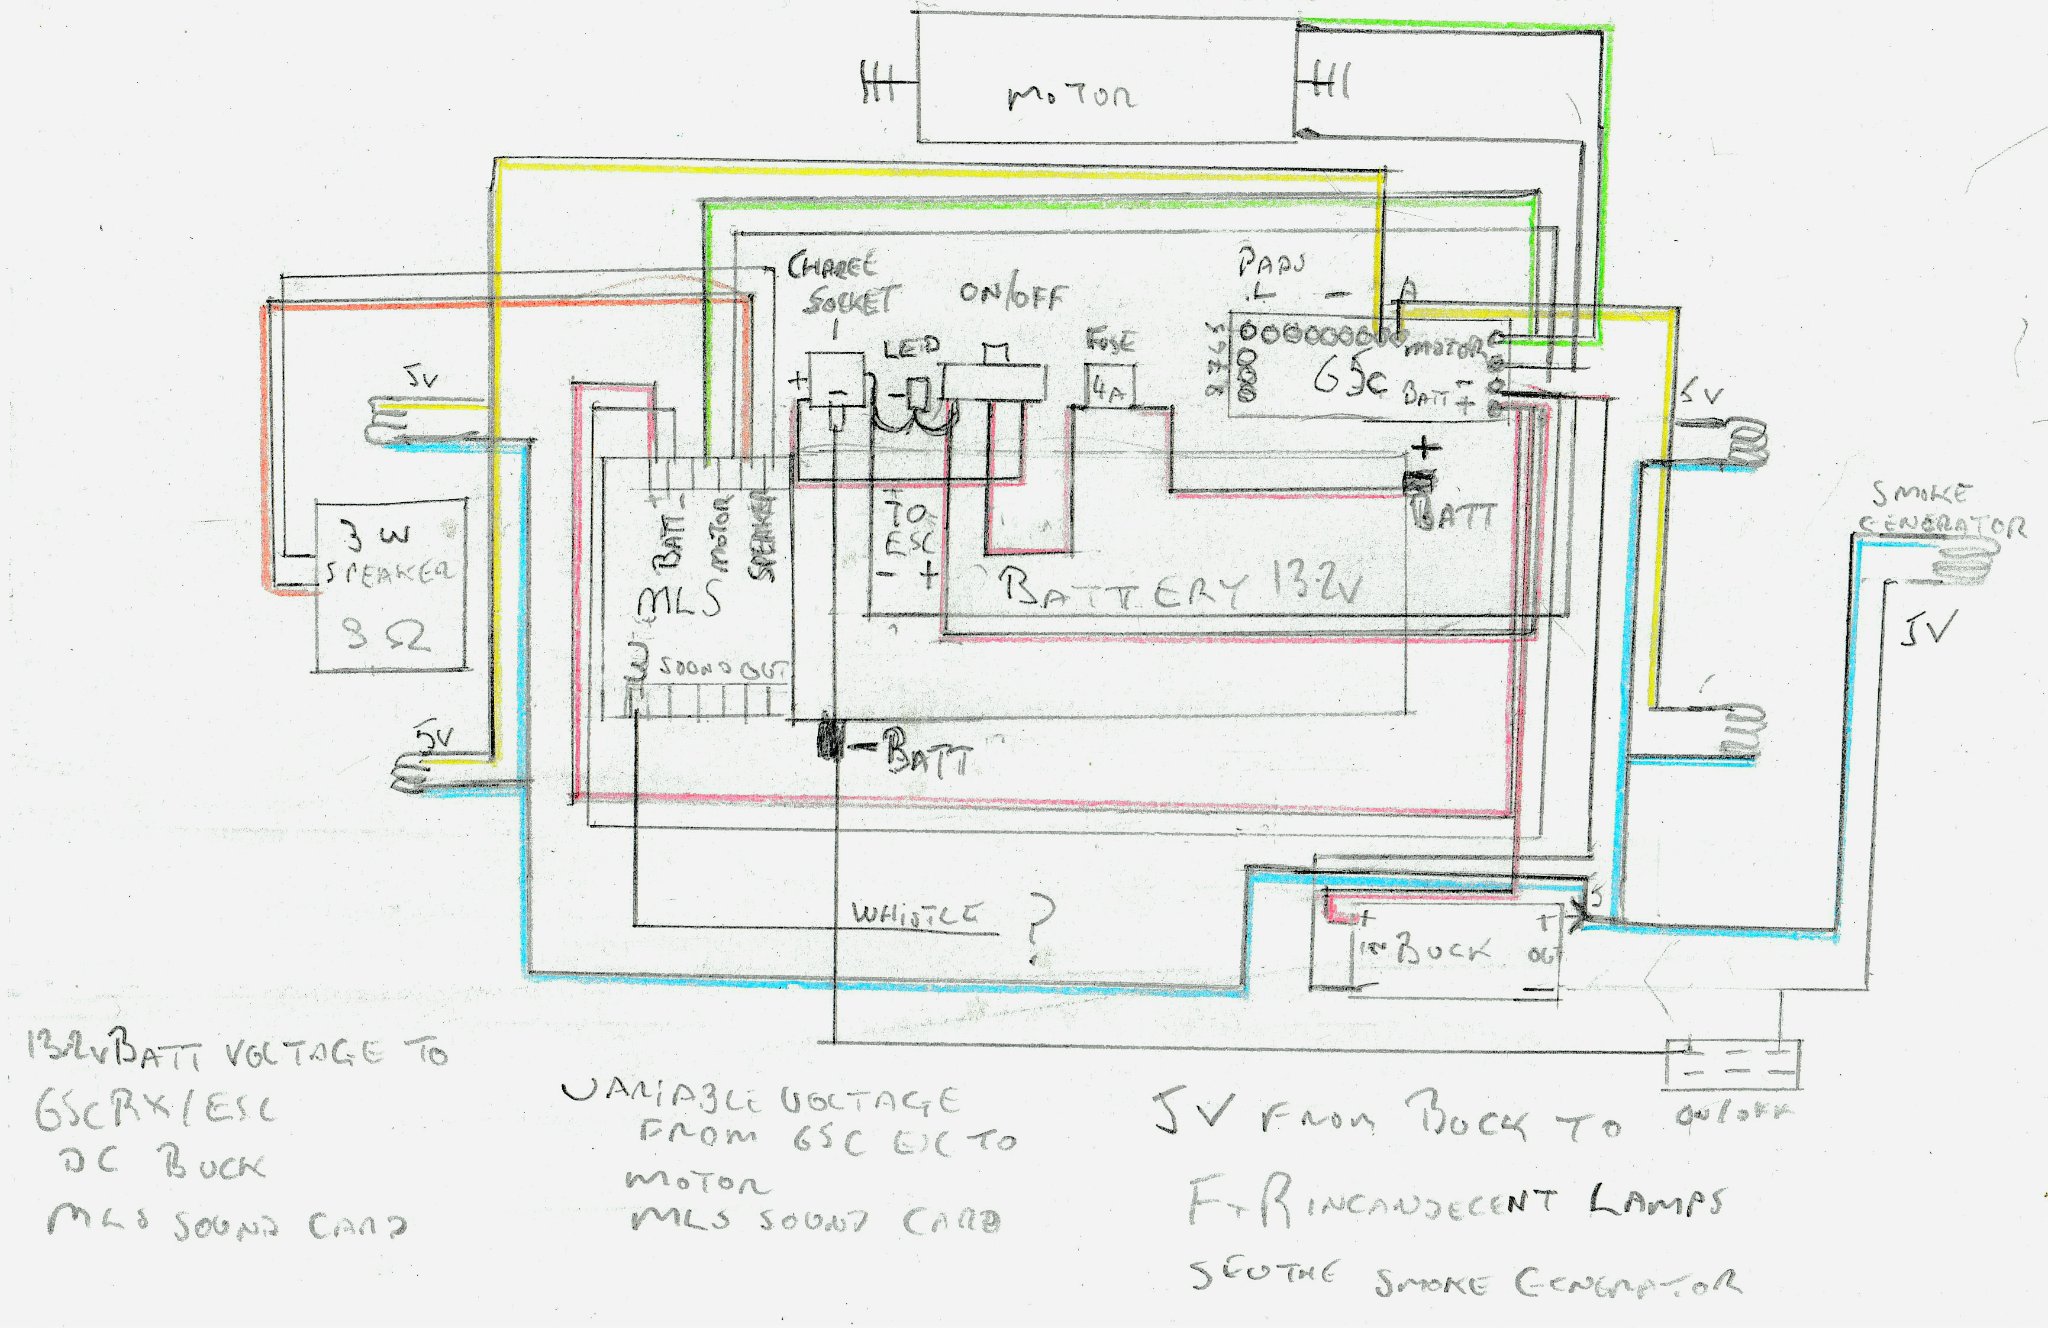 MOTOR
CHARGE
SOCKET
ON/OFF
PADS
L - A
LED
FUSE
4A
5 6 7 8
G5C
MOTOR
BATT - +
+ -
5V
5V
+
BATT
3W
SPEAKER
8 Ω
+ BATT -
MOTOR
SPEAKER
MLS
+
TO
ESC
- +
BATTERY 13.2V
SMOKE
GENERATOR
5V
SOUND OUT
5V
- BATT
WHISTLE ?
+ IN - BUCK + OUT -
5
ON/OFF
13.2V BATT VOLTAGE TO
G5C RX/ESC
DC BUCK
MLS SOUND CARD
VARIABLE VOLTAGE
FROM G5C ESC TO
MOTOR
MLS SOUND CARD
5V FROM BUCK TO
F+R INCANDECENT LAMPS
SEUTHE SMOKE GENERATOR